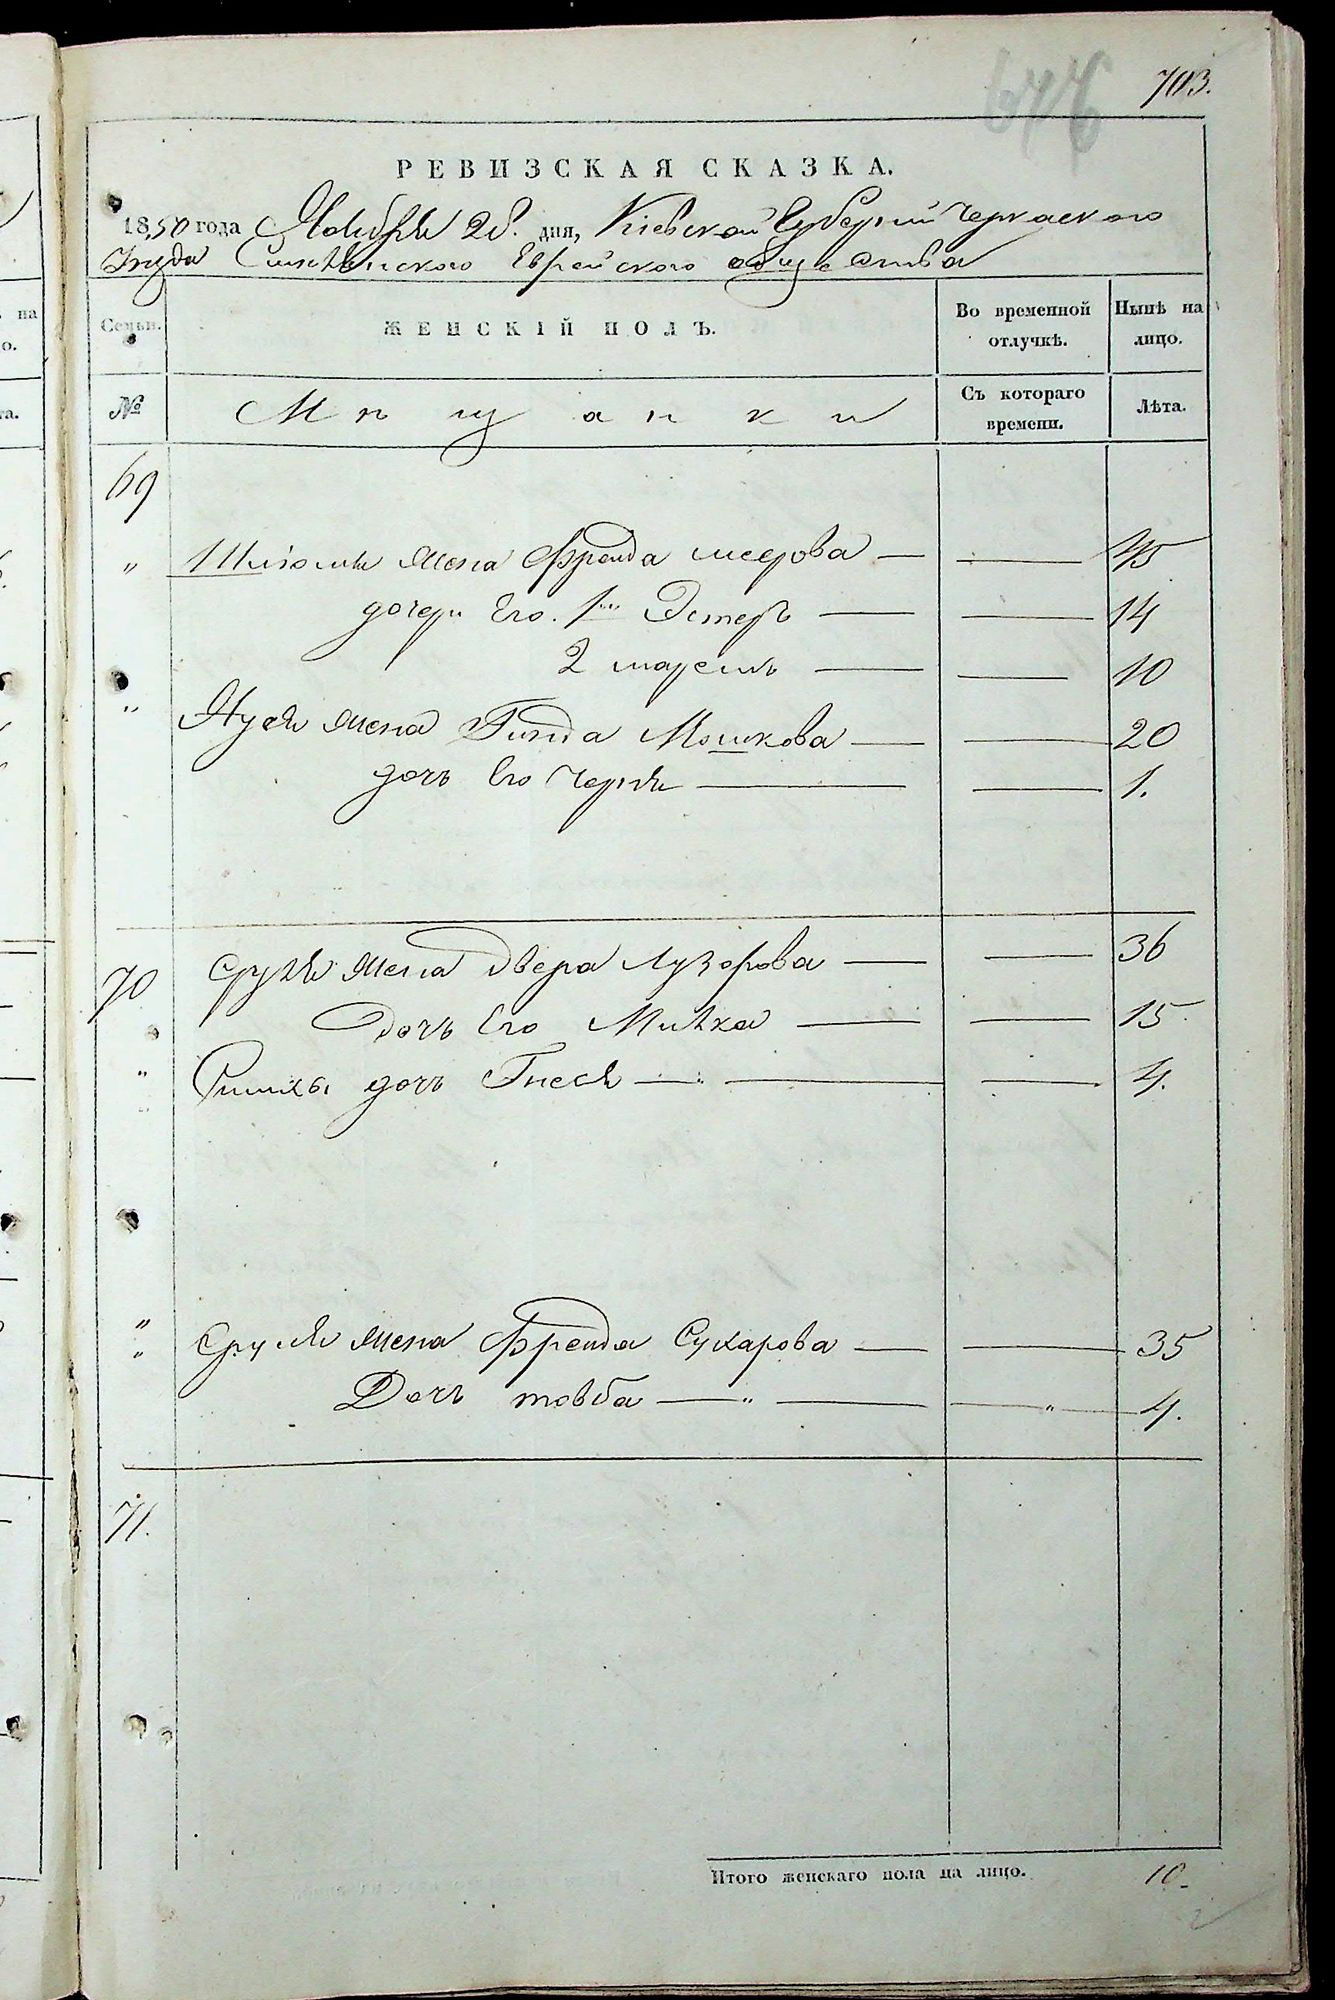 703.
РЕВИЗСКАЯ СКАЗКА.
1850 года Ноября 28. дня, Кіевской Губерніи Черкаского
Уезда Смѣлянского Еврейского общества
Семьи. ЖЕНСКІЙ ПОЛЪ. Во временной отлучкѣ. Нынѣ на лицо.
№ Мѣщанки Съ котораго времени. Лѣта.
69
" Шліомы жена Фрейда меерова — — 45
дочери Его. 1я Эстеръ — — 14
2 маремъ — — 10
" Нуся жена Гинда Мошкова — — 20
дочь Его Черня — — 1.
70 Сруля жена Двера Лузорова — — 36
Дочь Его Милка — — 15
" Симхы дочь Гнеся — " — — 4.
" Сруля жена Фрейда Сухарова — — 35
" Дочь товба — " — — " — 4.
71.
Итого женскаго пола на лицо. 10.